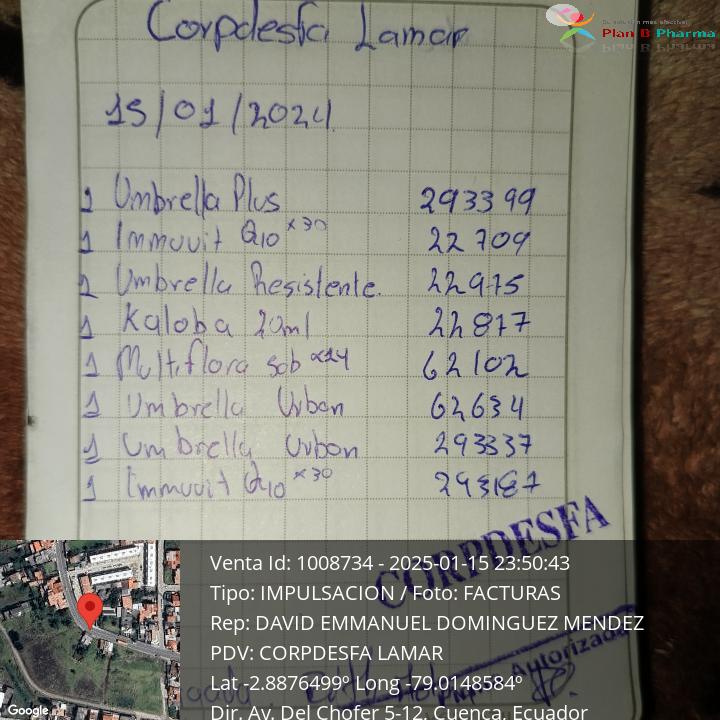 Corpdesfa Lamar
Su solución más efectiva!
Plan B Pharma
15/01/2024
1 Umbrella Plus 293399
1 Immuvit Q10 x30 22709
1 Umbrella Resistente. 22975
1 Kaloba 20ml 22877
1 Multiflora sob x14 62102
1 Umbrella Urban 62634
1 Umbrella Urban 293337
1 Immuvit Q10 x30 293187
CORPDESFA
Autorizada
Venta Id: 1008734 - 2025-01-15 23:50:43
Tipo: IMPULSACION / Foto: FACTURAS
Rep: DAVID EMMANUEL DOMINGUEZ MENDEZ
PDV: CORPDESFA LAMAR
Lat -2.8876499º Long -79.0148584º
Dir. Av. Del Chofer 5-12, Cuenca, Ecuador
Google